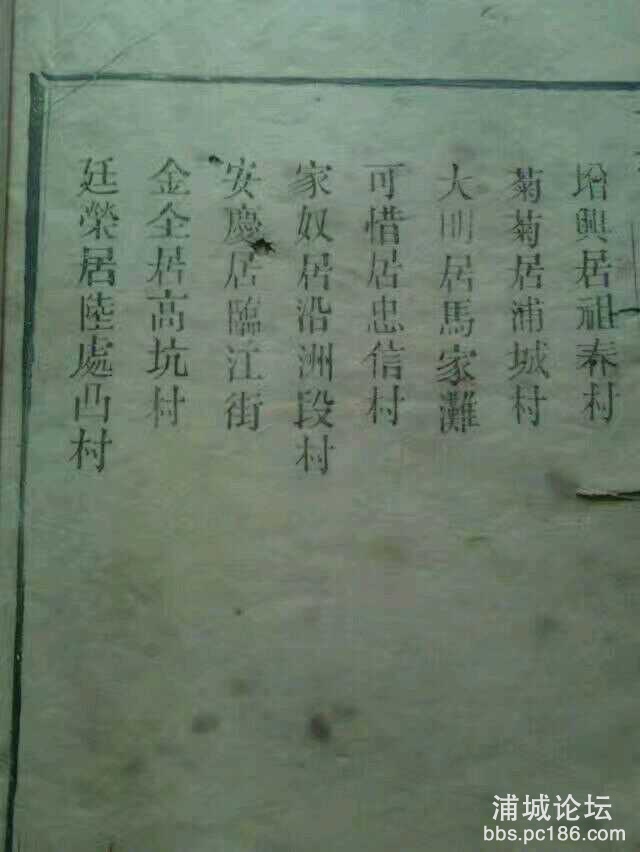 增興居祖泰村
菊菊居浦城村
大明居馬家灘
可惜居忠信村
家奴居沿洲段村
安慶居臨江街
金全居高坑村
廷榮居陸處凸村
浦城论坛
bbs.pc186.com